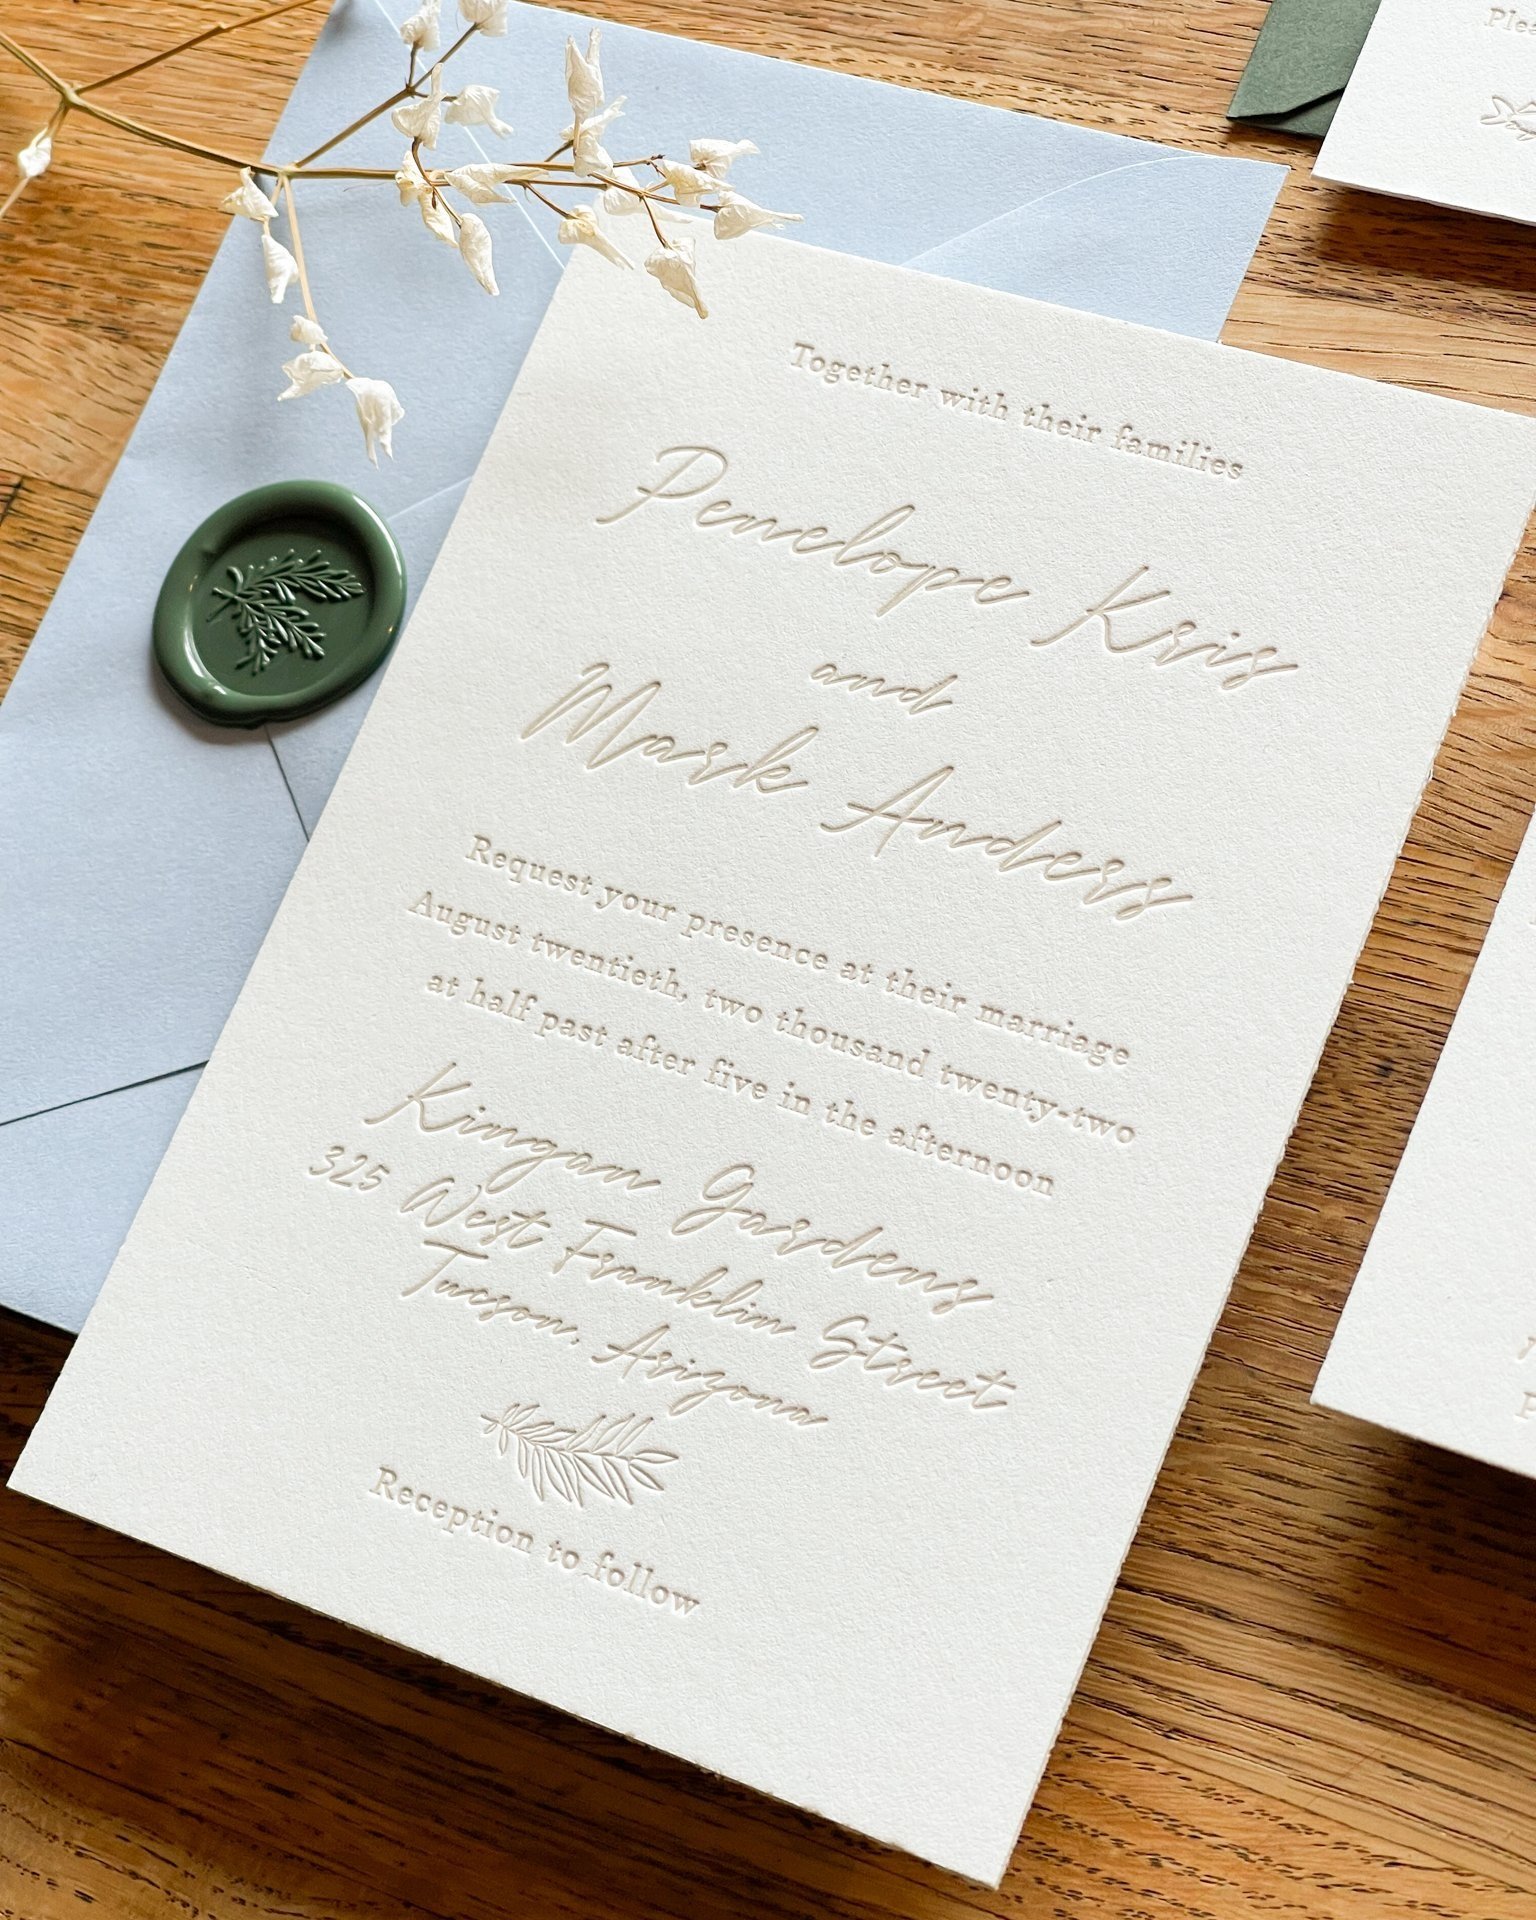 Together with their families
Penelope Kris
and
Mark Anderss
Request your presence at their marriage
August twentieth, two thousand twenty-two
at half past after five in the afternoon
Kimgan Gardens
325 West Franklin Street
Tucson, Arizona
Reception to follow